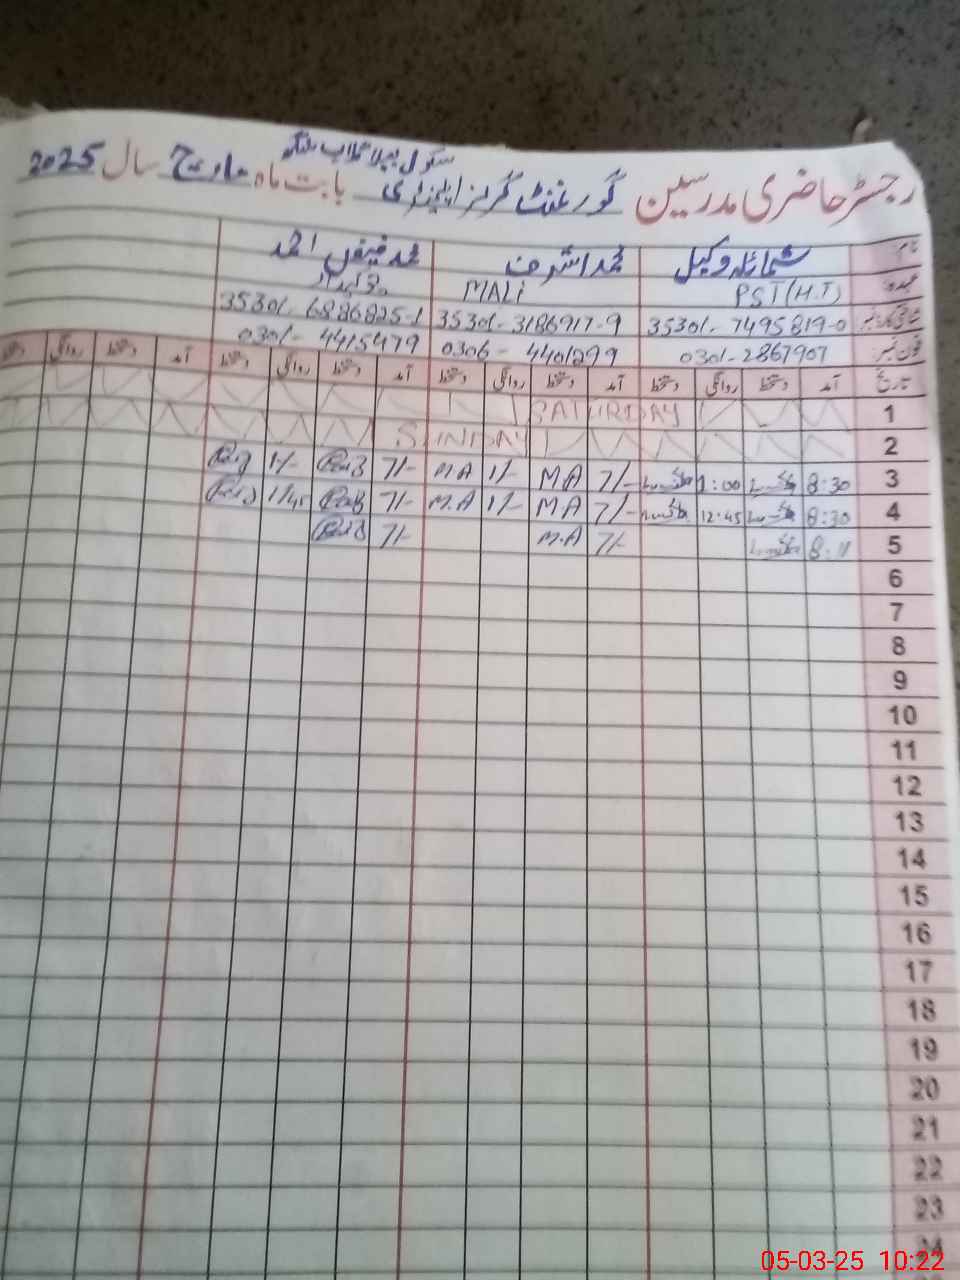 رجسٹر حاضری مدرسین گورنمنٹ گرلز ایلیمنٹری سکول بابت ماہ مارچ سال 2025
نام شمائلہ وکیل محمد اشرف محمد فیض احمد
عہدہ PST (H.T) MALi چوکیدار
35301-7495819-0 35301-3186917-9 35301-6886825-1
فون نمبر 0301-2867907 0306-4401299 0301-4415479
تاریخ آمد دستخط روانگی دستخط آمد دستخط روانگی دستخط آمد دستخط روانگی دستخط آمد دستخط روانگی دستخط
1 SATURDAY
2 SUNDAY
3 8:30 1:00 7/- M.A 1/- M.A 7/- 1/-
4 8:30 12:45 7/- M.A 1/- M.A 7/- 1/45
5 8:11 7/- M.A 7/-
6
7
8
9
10
11
12
13
14
15
16
17
18
19
20
21
22
23
24
05-03-25 10:22